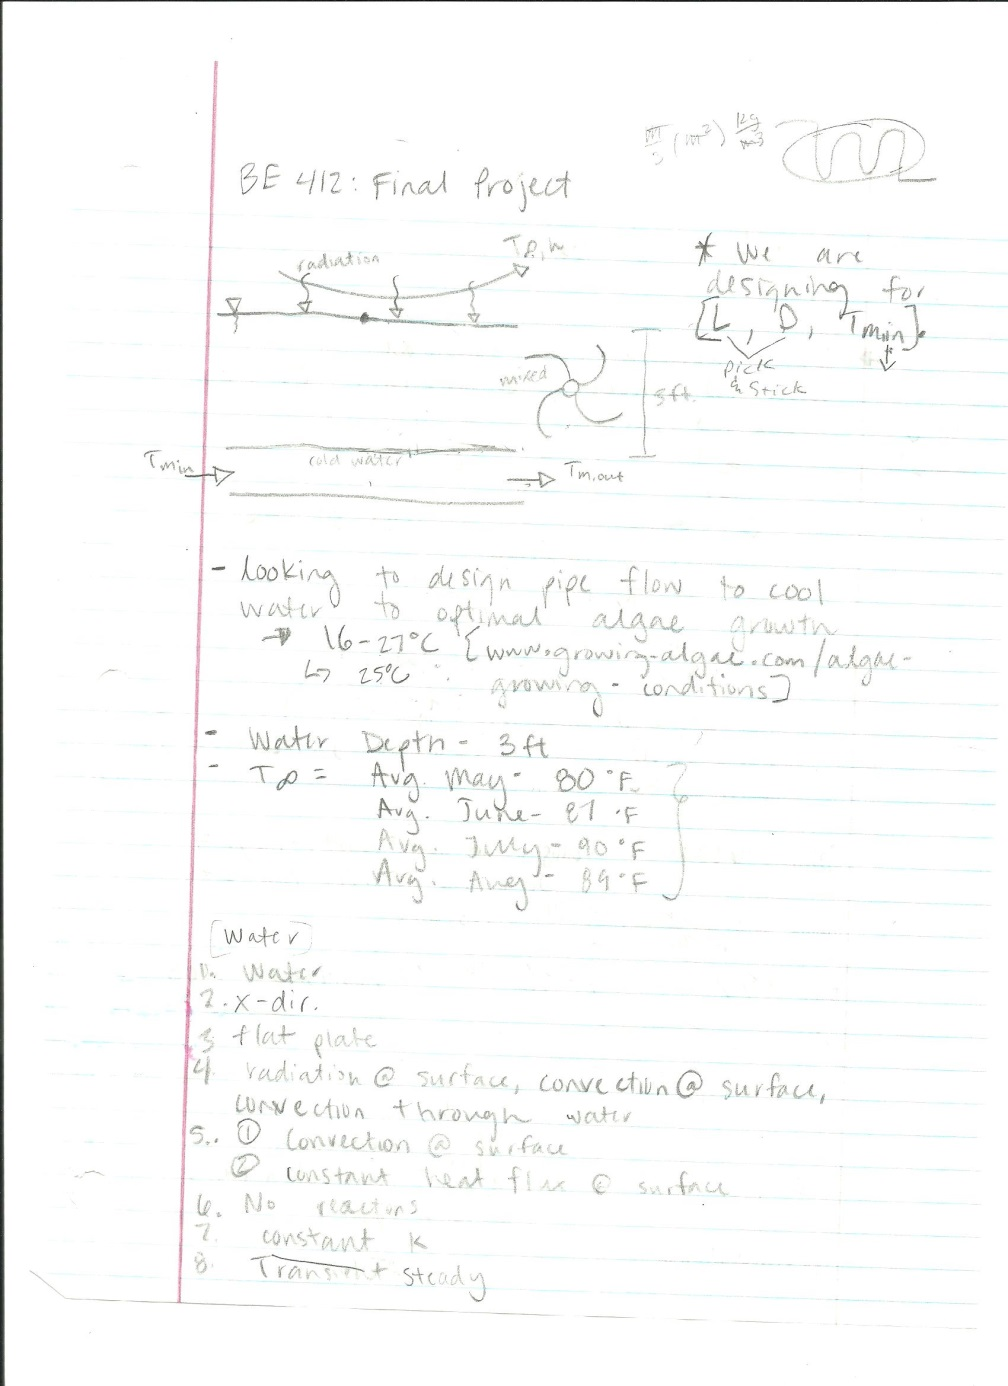 12g
m3
(m²)
BE 412: Final Project
T∞,h
radiation
* We are
designing for
[L, D, Tmin].
pick
& stick
mixed
3ft.
Tmin
cold water
Tm,out
- Looking to design pipe flow to cool
water to optimal algae growth
→ 16-27°C [www.growing-algae.com/algae-
↳ 25°C growing-conditions]
- Water Depth - 3ft
- T∞ = Avg. May - 80°F
Avg. June - 87°F
Avg. July - 90°F
Avg. Aug - 89°F
Water
1. Water
2. x-dir.
3 flat plate
4 radiation @ surface, convection @ surface,
convection through water
5.. ① Convection @ surface
② constant heat flux @ surface
6. No
7. constant k
8. Transient steady